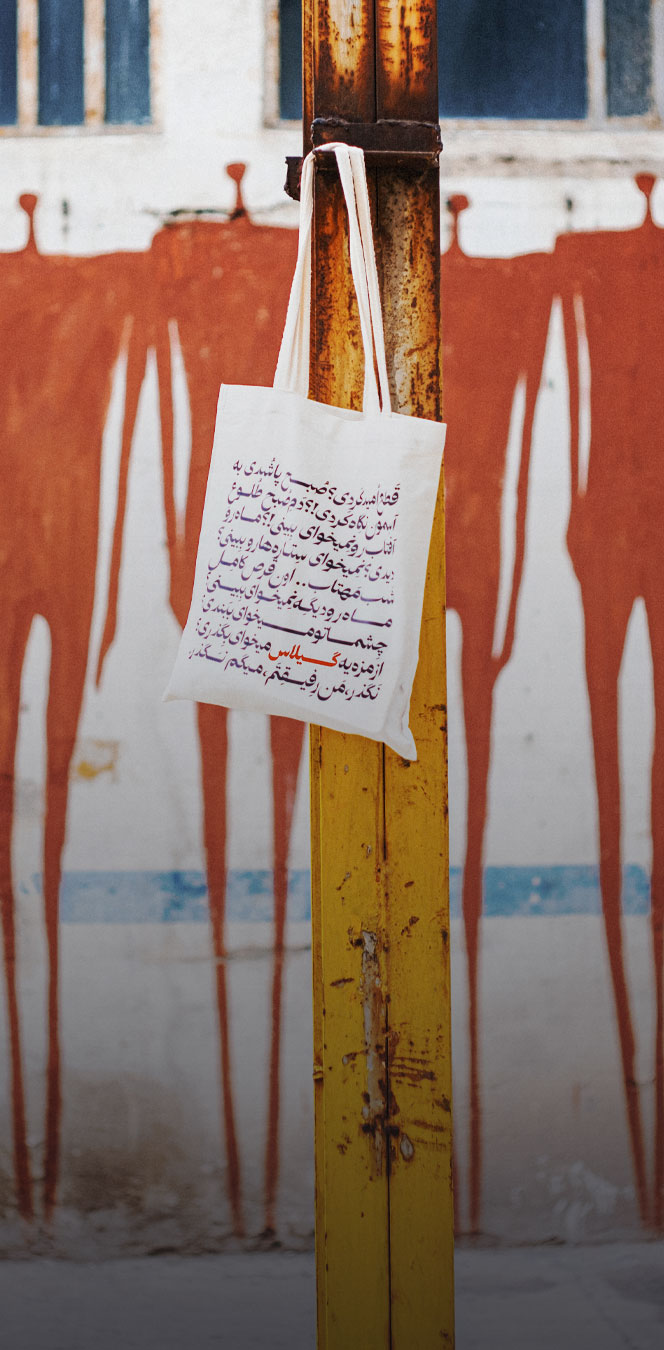 قطعِ امید کردی؟ صُبح پاشدی به
آسمون نگاه کردی!؟ دَم صبح طُلوعِ
آفتاب رو نمیخوای ببینی!؟ ماه رو
دیدی؟ نمیخوای ستاره‌ها رو ببینی؟
شب مَهتاب.. اون قرص کامل
ماه رو دیگه نمیخوای ببینی؟
چشماتو میخوای ببندی؟
از مزه یه گیلاس میخوای بگذری؟
نَگذر، مَن رفیقِتَم، میگم نَگذر،